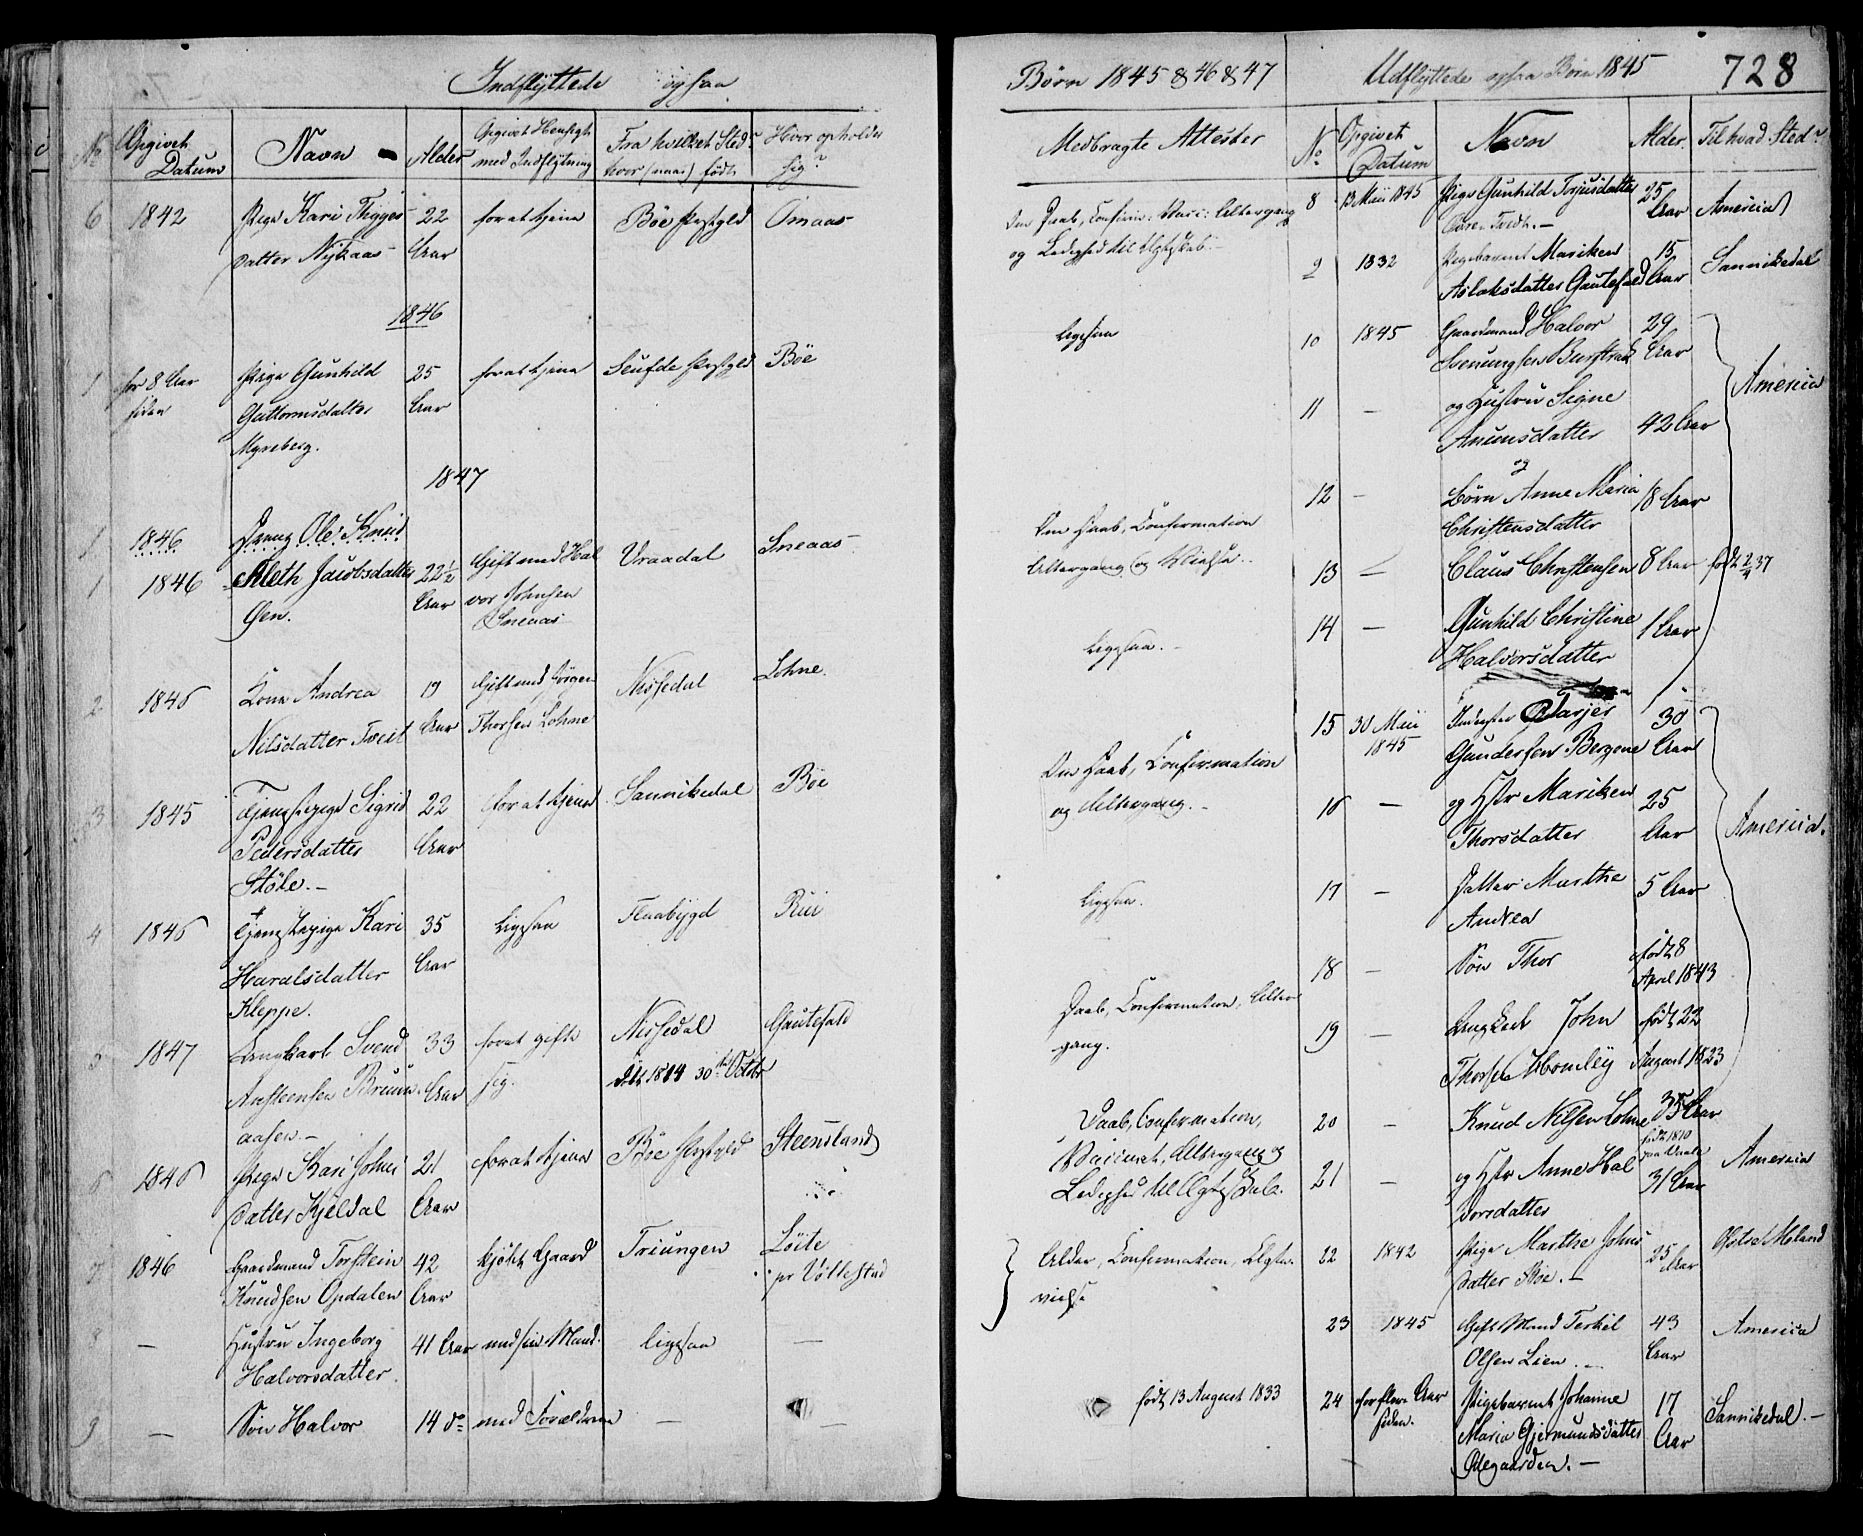 Indflyttede ogsaa
No
Opgivet Datum
Navn
Alder
Opgivet Hensigt med Indflytning
Fra hvilket Sted
hvor (naar) født
Hvor opholder sig?
6 1842 Pige Kari Tigges- 22 for at tjene Bøe Præstgjeld Omaas
datter Nykaas Aar
1846
1 for 8 Aar Pige Gunhild 25 for at tjene Seufde Præstgjeld Bøe
siden Guttormsdatter Aar
Myreberg.
1847
1 1846 Dreng Ole Knud
1 1846 Aleth Jacobsdatter 22½ Gift med Hal- Vraadal Sneaas
Øen. Aar vor Johnsen
Sneaas
2 1846 Kone Andrea 19 Gift med Jørgen Nissedal Lohne.
Nilsdatter Tveit Aar Thorsen Lohne
3 1845 Tjenestepige Sigrid 22 for at tjene Sannikedal Bøe
Pedersdatter Aar
Støle.
4 1846 Tjenestepige Kari 35 ligesaa Flaabygd Rui
Haralsdatter Aar
Kleppe.
5 1847 Ungkarl Svend 33 for at gifte Nissedal Gautefald
Ansteensen Bruun- Aar sig. født 1814 30te Octobr
aasen.
6 1846 Pige Kari Johns- 21 for at tjene Bøe Præstgjeld Steensland
datter Kjeldal Aar
7 1846 Gaardmand Torstein 42 kjøbt Gaard Triungen Løite
Knudsen Opdalen Aar pr Vøllestad
8 — Hustru Ingeborg 41 Aar med sin Mand. ligesaa —
Halvorsdatter
9 — Søn Halvor 14 do med Forældrene — —
Børn 1845 & 46 & 47
Medbragte Attester
Om Daab, Confirm. Vacc. Altergang
og Ledighed til Ægteskab.
ligesaa
Om Daab, Confirmation
Altergang og Vielse.
ligesaa.
Om Daab, Confirmation
og Altergang.
ligesaa.
Daab, Confirmation, Alter-
gang.
Daab, Confirmation,
Vaccinat, Altergang og
Ledighed til Ægteskab.
Alder, Confirmation, Ægte-
vielse
født 13 August 1833
Udflyttede ogsaa Børn 1845
728
No
Opgivet Datum
Navn
Alder.
Til hvad Sted?
8 13 Maii 1845 Pige Gunhild Terjusdatter 25 Aar America
Tvedt.
9 1832 Pigebarnet Mariken 15 Sannikedal
Aslaksdatter Gautefald Aar
10 1845 Gaardmand Halvor 29
Svenungsen Aar
America
11 — og Hustru Signe
Anunsdatter 42 Aar
og
12 — Børn Anne Maria 18 Aar
Christensdatter
13 — Claus Christensen 8 Aar født 2/4 37
14 — Gunhild Christine 1 Aar
Halvorsdatter
15 30 Maii Inderster Tarjer 30
1845 Gundersen Bergene Aar
16 — og Hstr Mariken 25
Thorsdatter Aar
America.
17 — Datter Marthe 5 Aar
Andrea
18 — Søn Thor født 8
April 1843
19 — Ungkarl John født 22
Thorsen Momley August 1823
20 — Knud Nilsen Lohne 35 Aar
født 1810
America
21 — og Hstr Anne Hal- 31 Aar
vorsdatter
22 1842 Pige Marthe Johns- 25 Østre Moland
datter Bøe. Aar
23 1845 Gift Mand Terkil 43 America
Olsen Lien. Aar
24 for flere Aar Pigebarnet Johanne 17 Sannikedal.
siden. Maria Gjermundsdatter Aar
Ødegaarden.